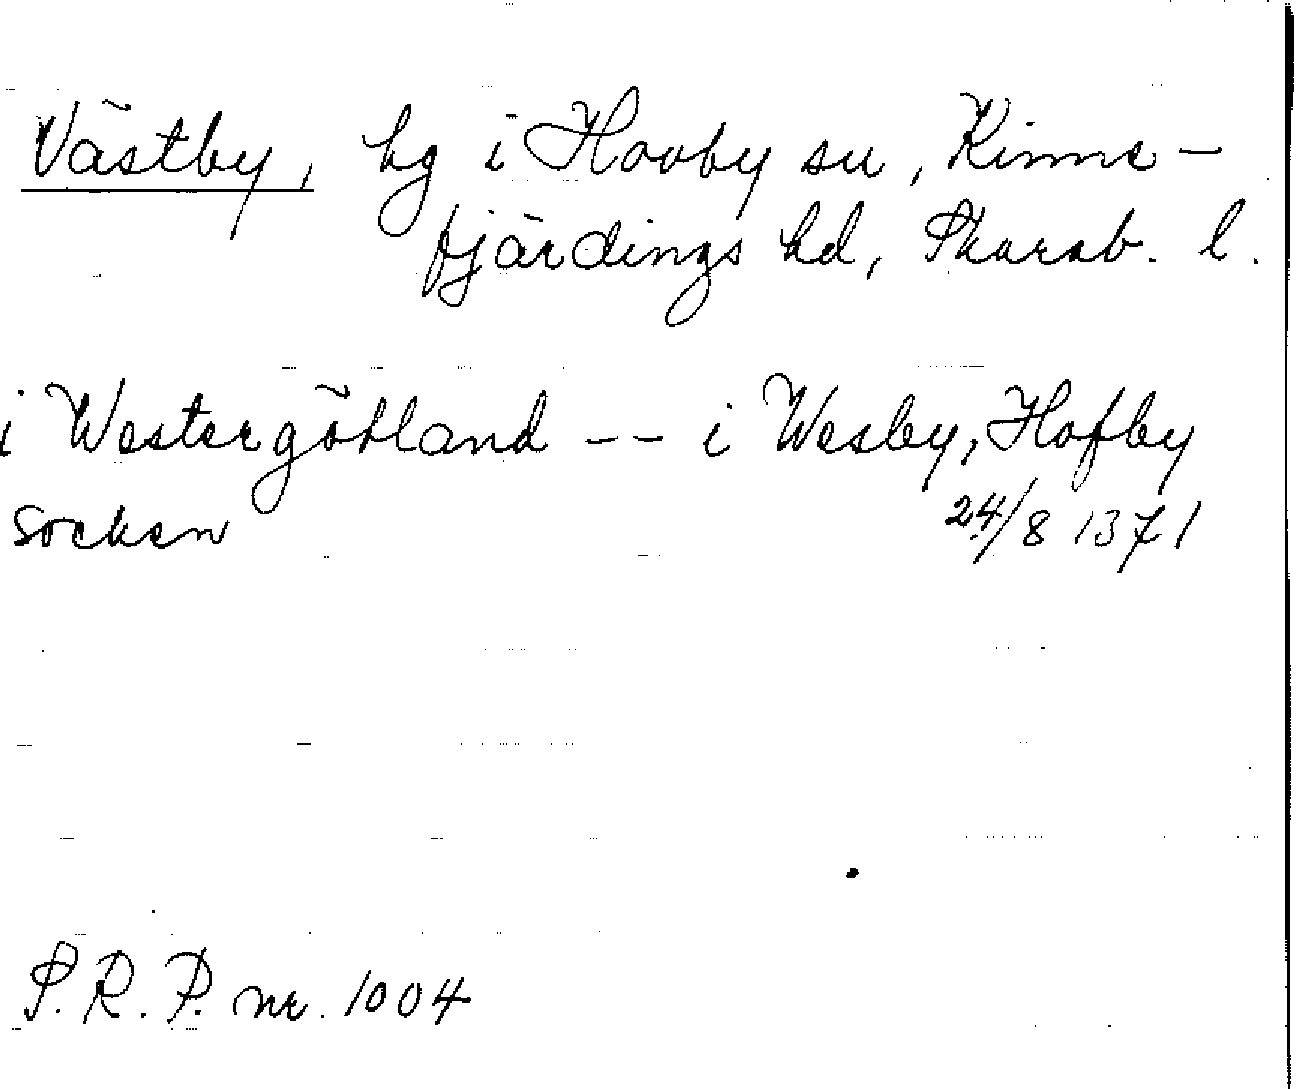 Västby, hg i Hovby sn, Kinne-
fjärdings hd, Skarab. l.
i Westergötland -- i Wesby, Hofby
socken 24/8 1371
S.R.P. nr. 1004